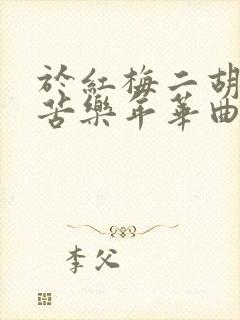 於紅梅二胡
苦樂年華曲
李父